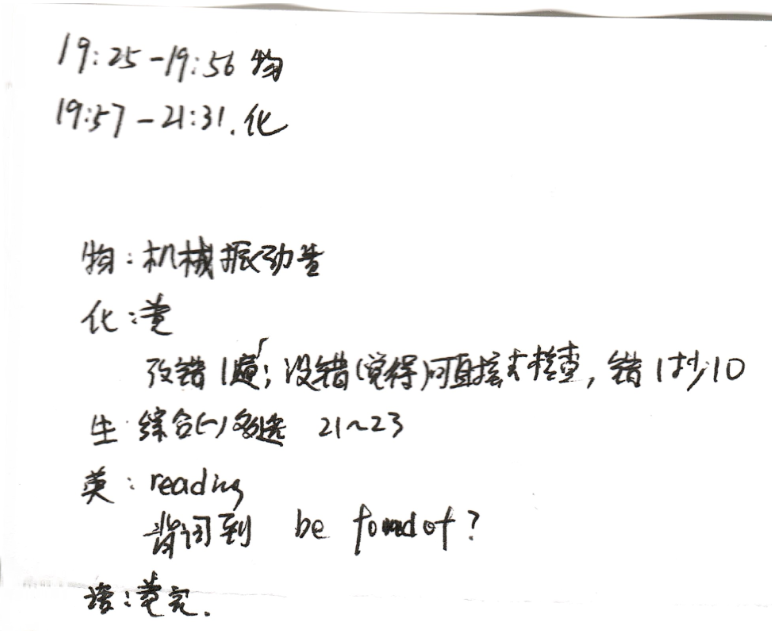 19:25-19:56 物
19:57-21:31.化
物:机械振动卷
化:卷
改错1题;没错(觉得)可直接求检查,错1抄10
生:综合(一)多选 21~23
英:reading
背词到 be fond of?
语:卷完.